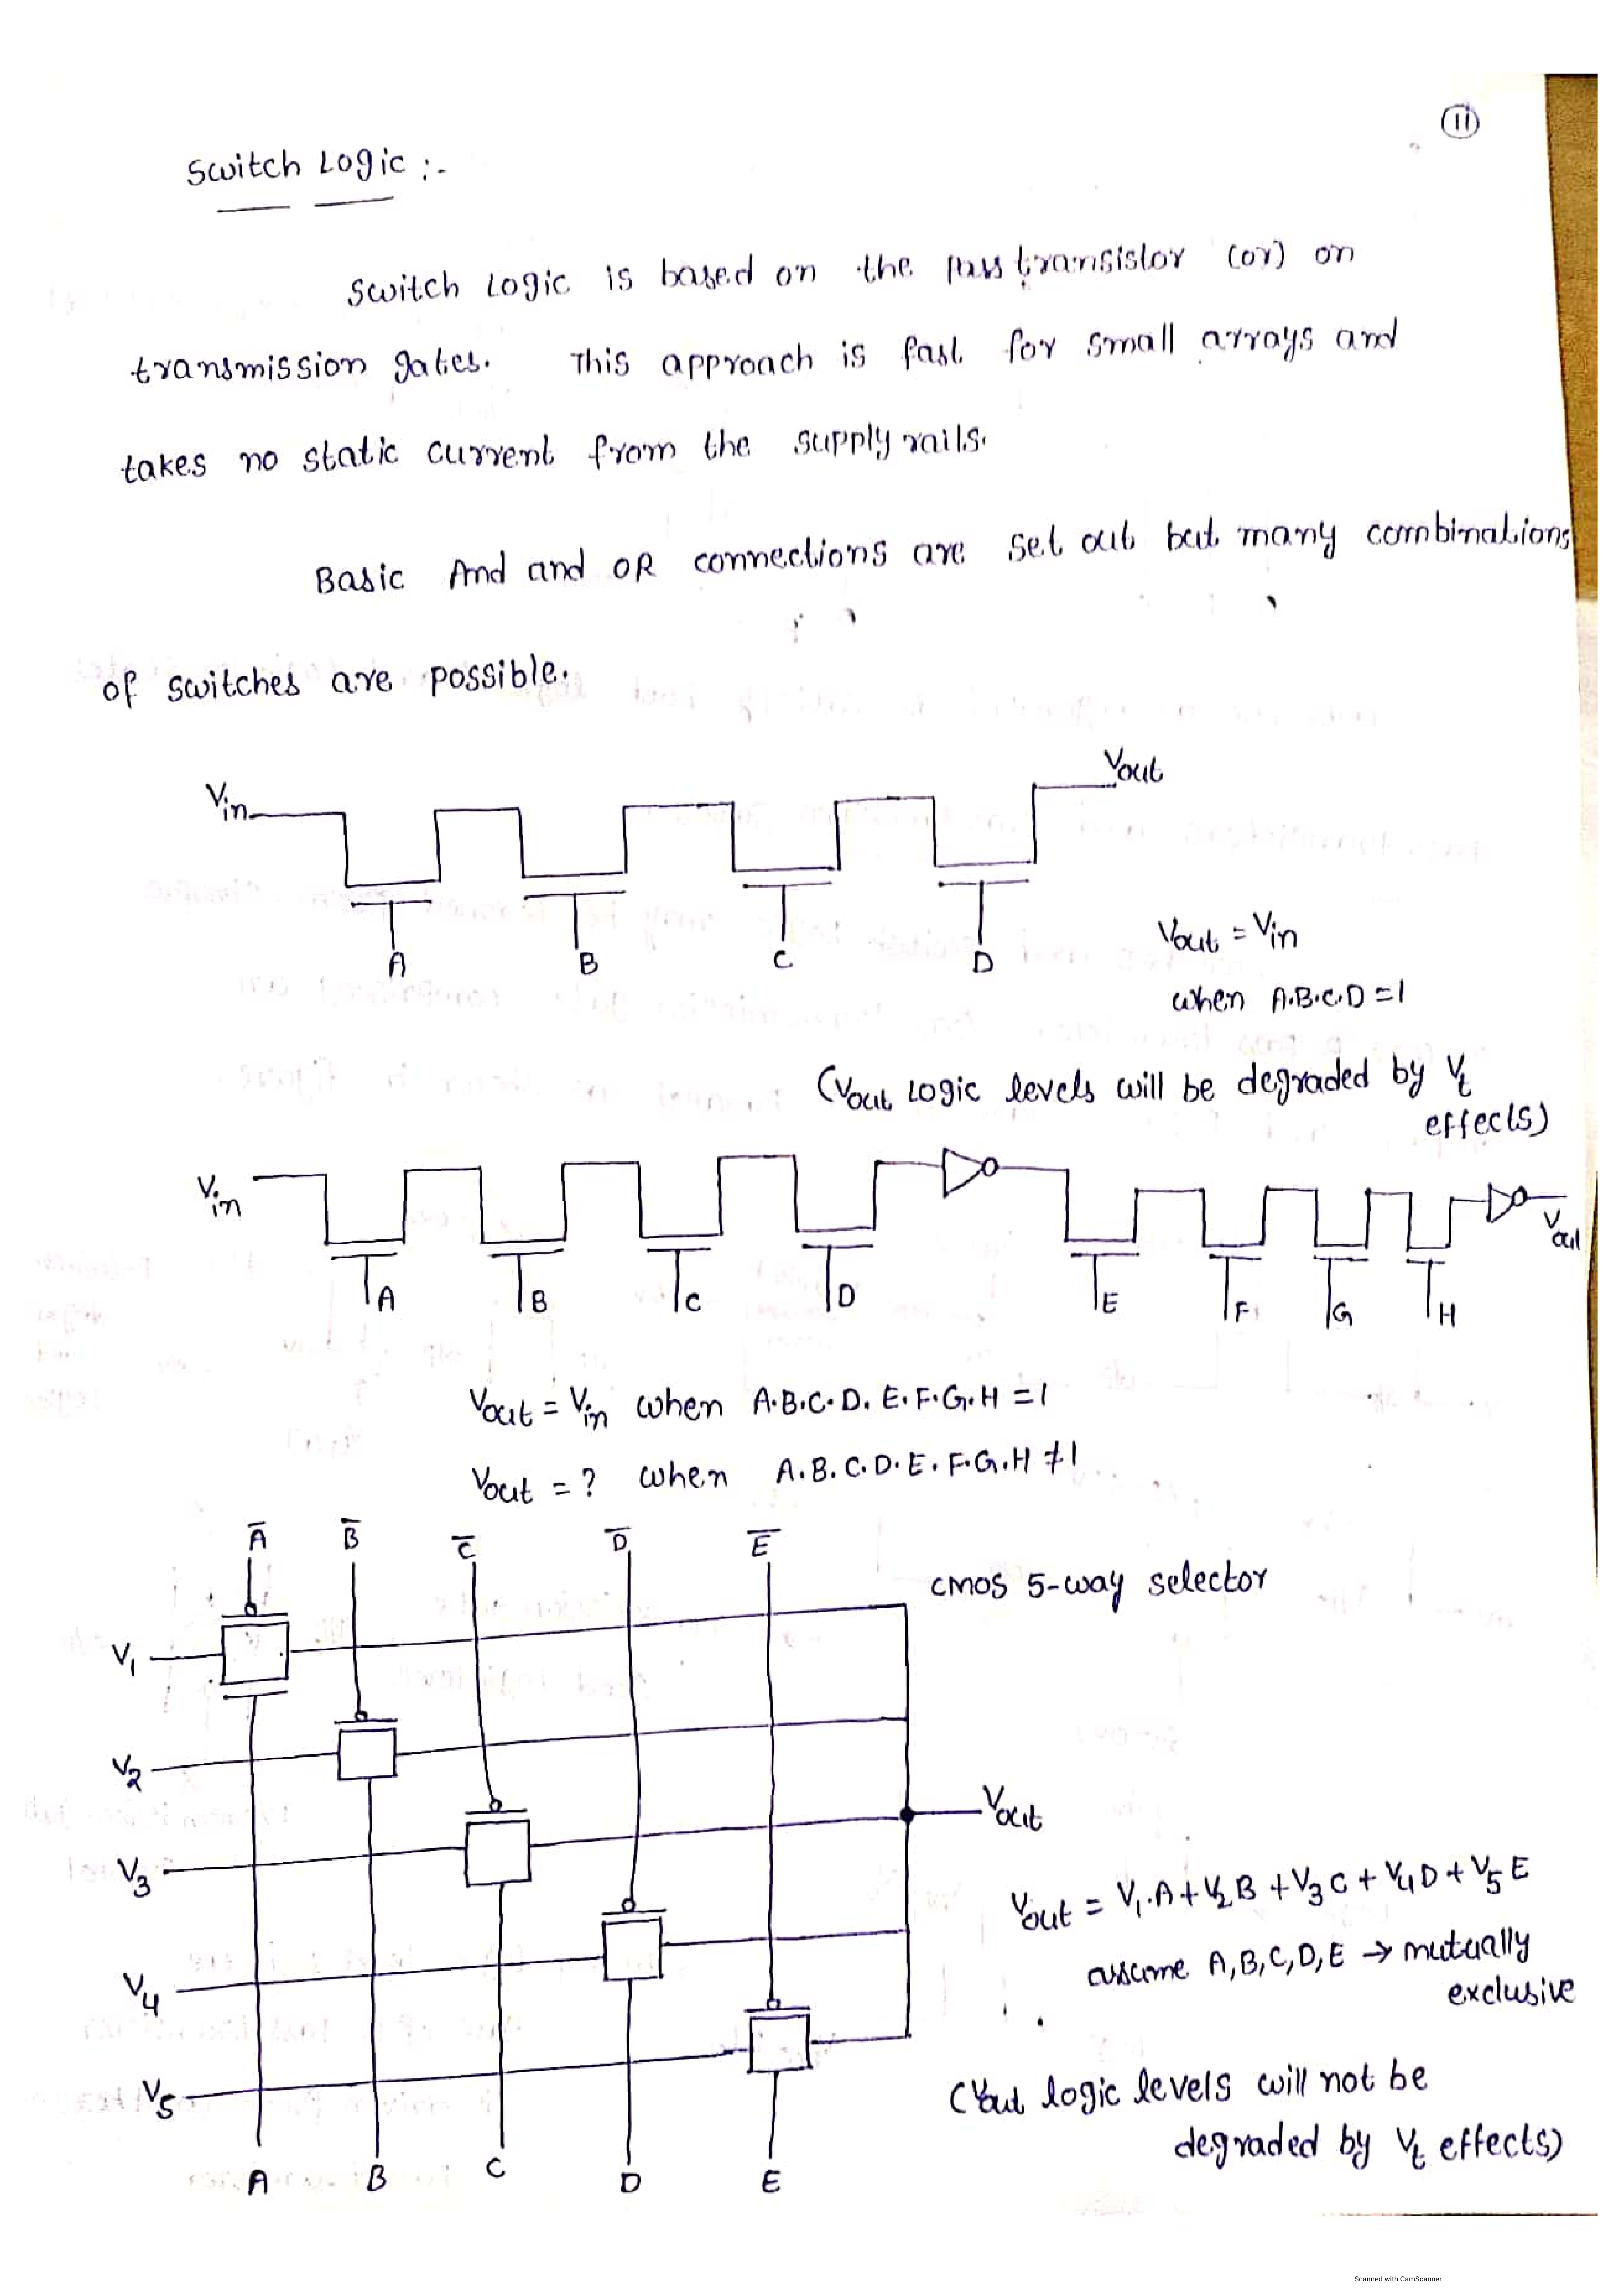 11
Switch Logic :-
Switch Logic is based on the pass transistor (or) on
transmission gates. This approach is fast for small arrays and
takes no static current from the supply rails.
Basic And and OR connections are set out but many combinations
of switches are possible.
Vin
Vout
A B C D
Vout = Vin
when A.B.C.D = 1
(Vout Logic levels will be degraded by Vt
effects)
Vin
A B C D E F G H
Vout
Vout = Vin when A.B.C.D.E.F.G.H = 1
Vout = ? when A.B.C.D.E.F.G.H ≠ 1
A̅ B̅ C̅ D̅ E̅
CMOS 5-way selector
V1
V2
V3
V4
V5
Vout
Vout = V1.A + V2B + V3C + V4D + V5E
assume A, B, C, D, E → mutually
exclusive
(Vout logic levels will not be
degraded by Vt effects)
A B C D E
Scanned with CamScanner